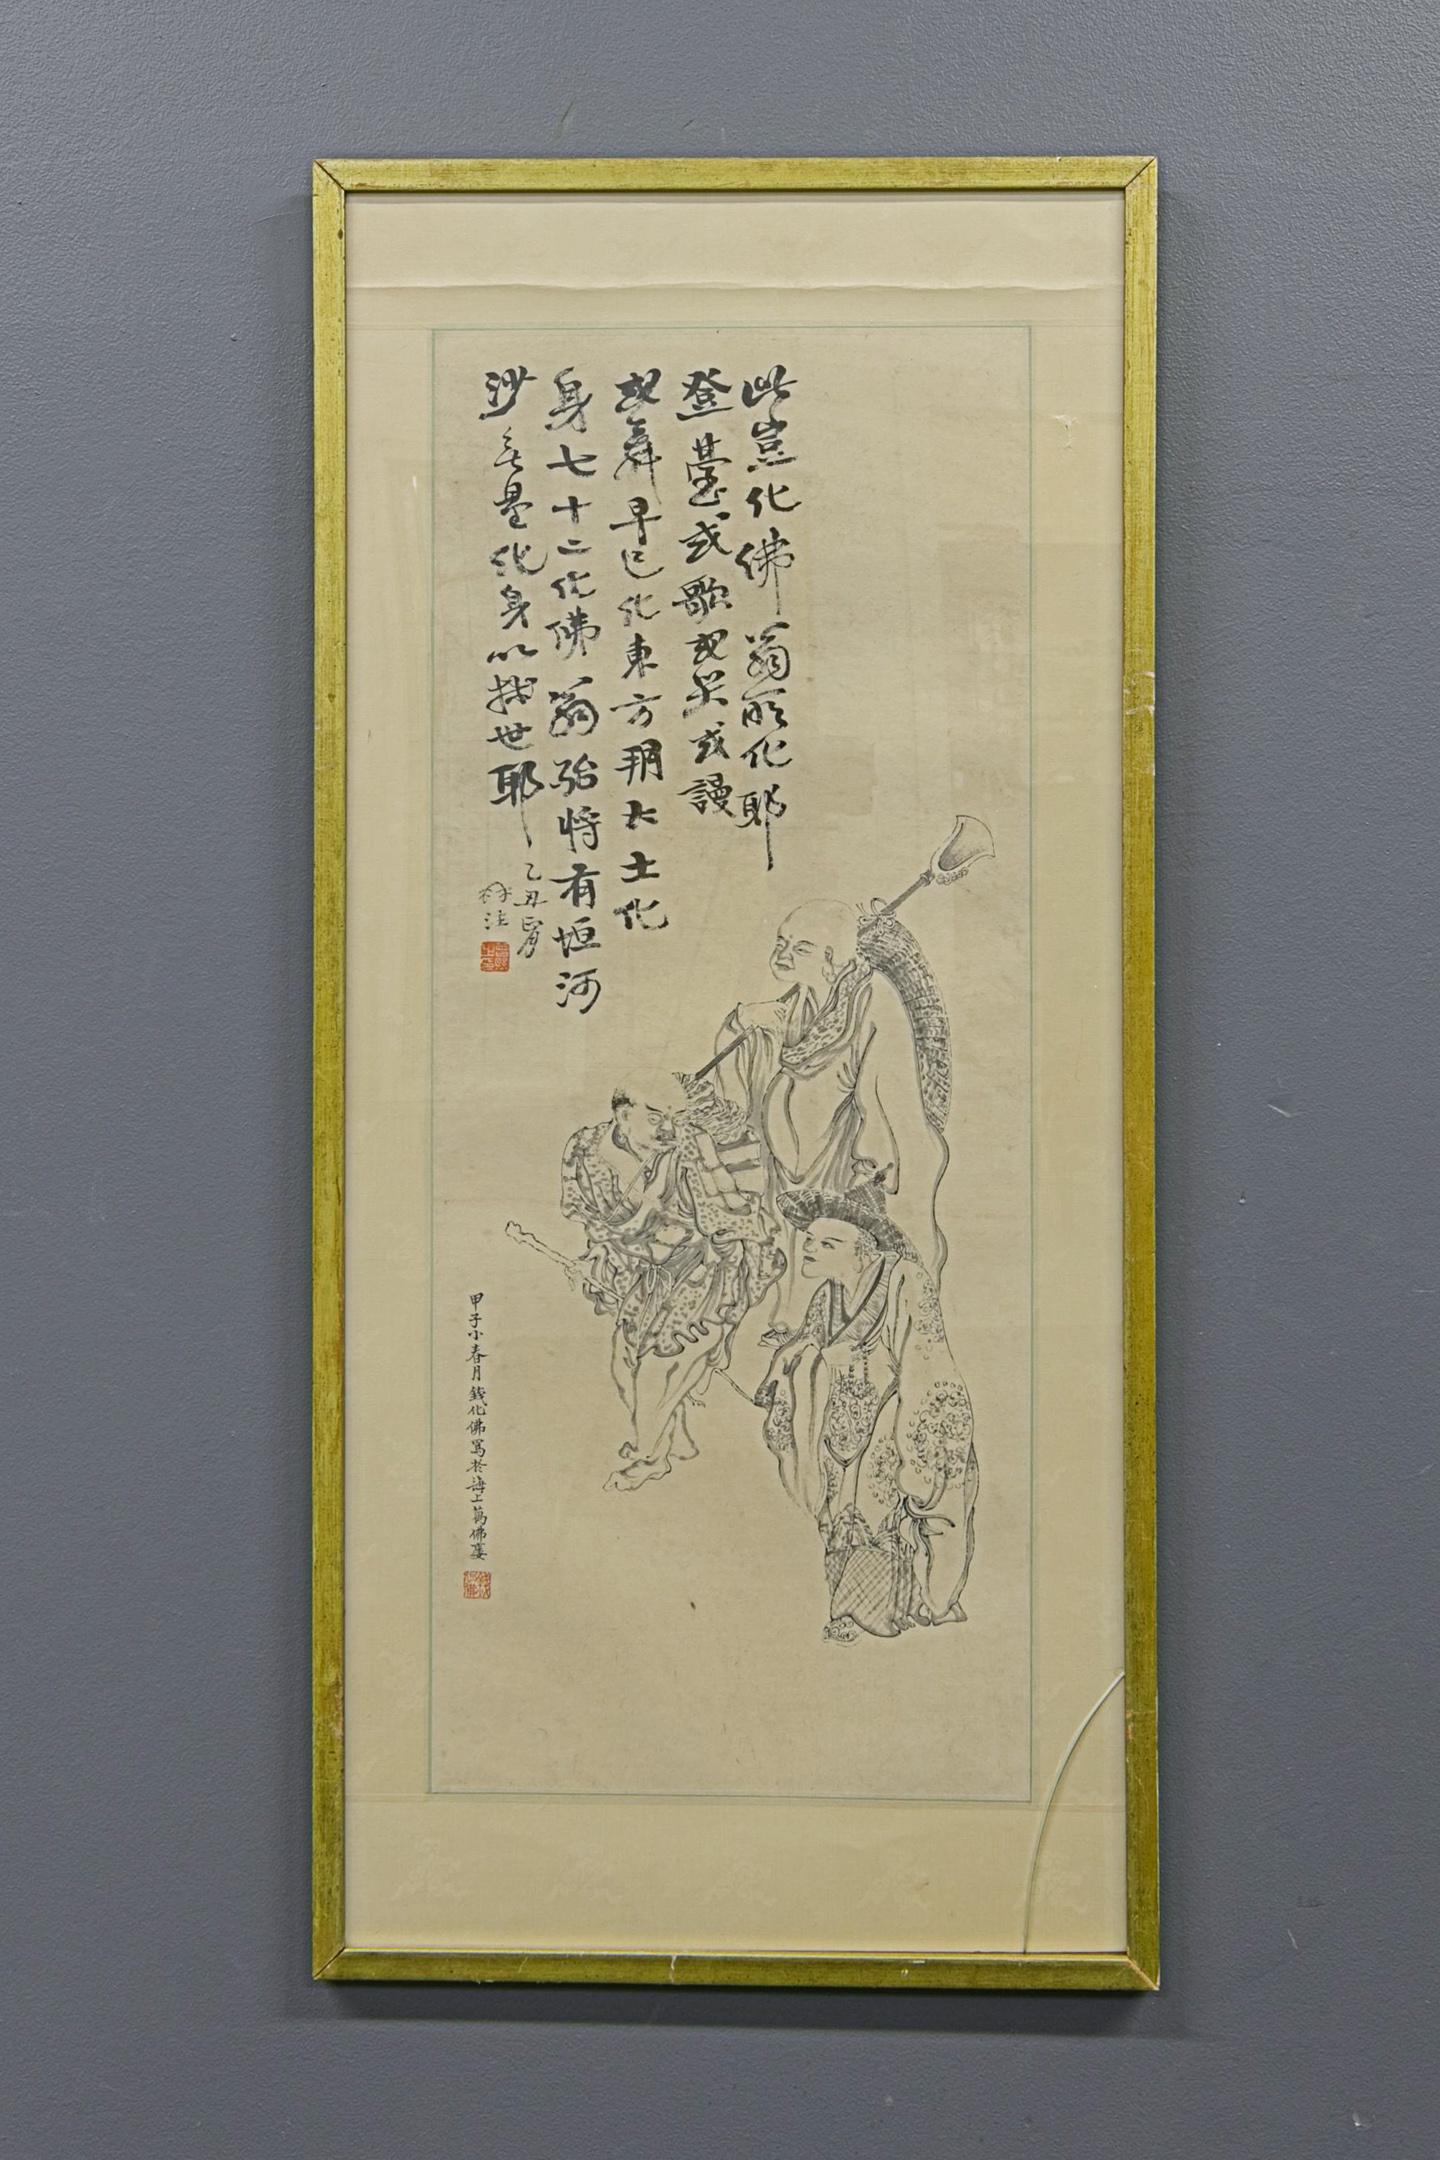 此豈化佛翁所化耶
登臺或歌或哭或謾
或舞早已化東方朔大士化
身七十二化佛翁殆將有恒河
沙無量化身以救世耶
乙丑正月
甲子小春月錢化佛寫於海上萬佛樓